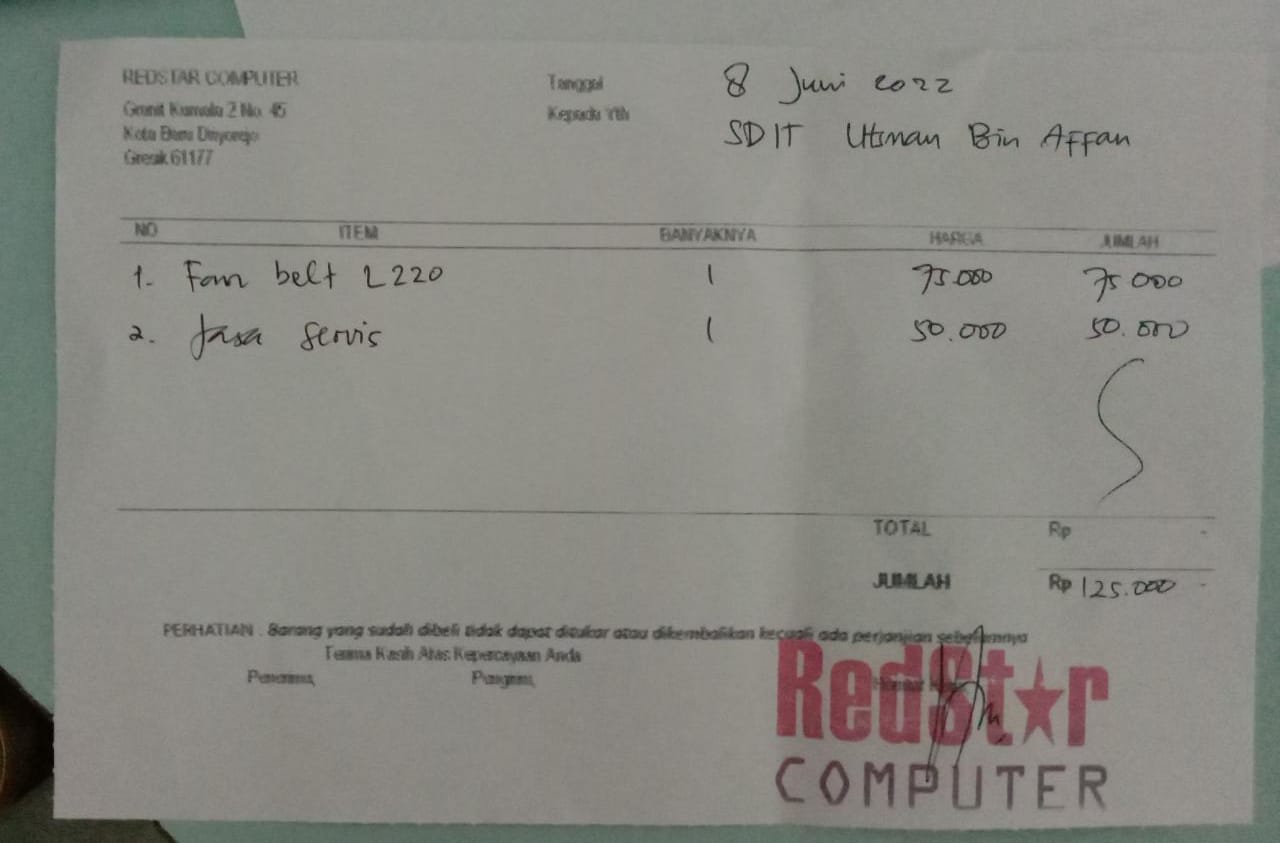 REDSTAR COMPUTER
Granit Kumala 2 No. 45
Kota Baru Driyorejo
Gresik 61177
Tanggal 8 Juni 2022
Kepada Yth SDIT Utsman Bin Affan
NO ITEM BANYAKNYA HARGA JUMLAH
1. Fan belt L220 1 75.000 75 000
2. Jasa Servis 1 50.000 50.000
TOTAL Rp -
JUMLAH Rp 125.000 -
PERHATIAN : Barang yang sudah dibeli tidak dapat ditukar atau dikembalikan kecuali ada perjanjian sebelumnya
Terima Kasih Atas Kepercayaan Anda
Penerima, Pengirim, Hormat
RedStar
COMPUTER